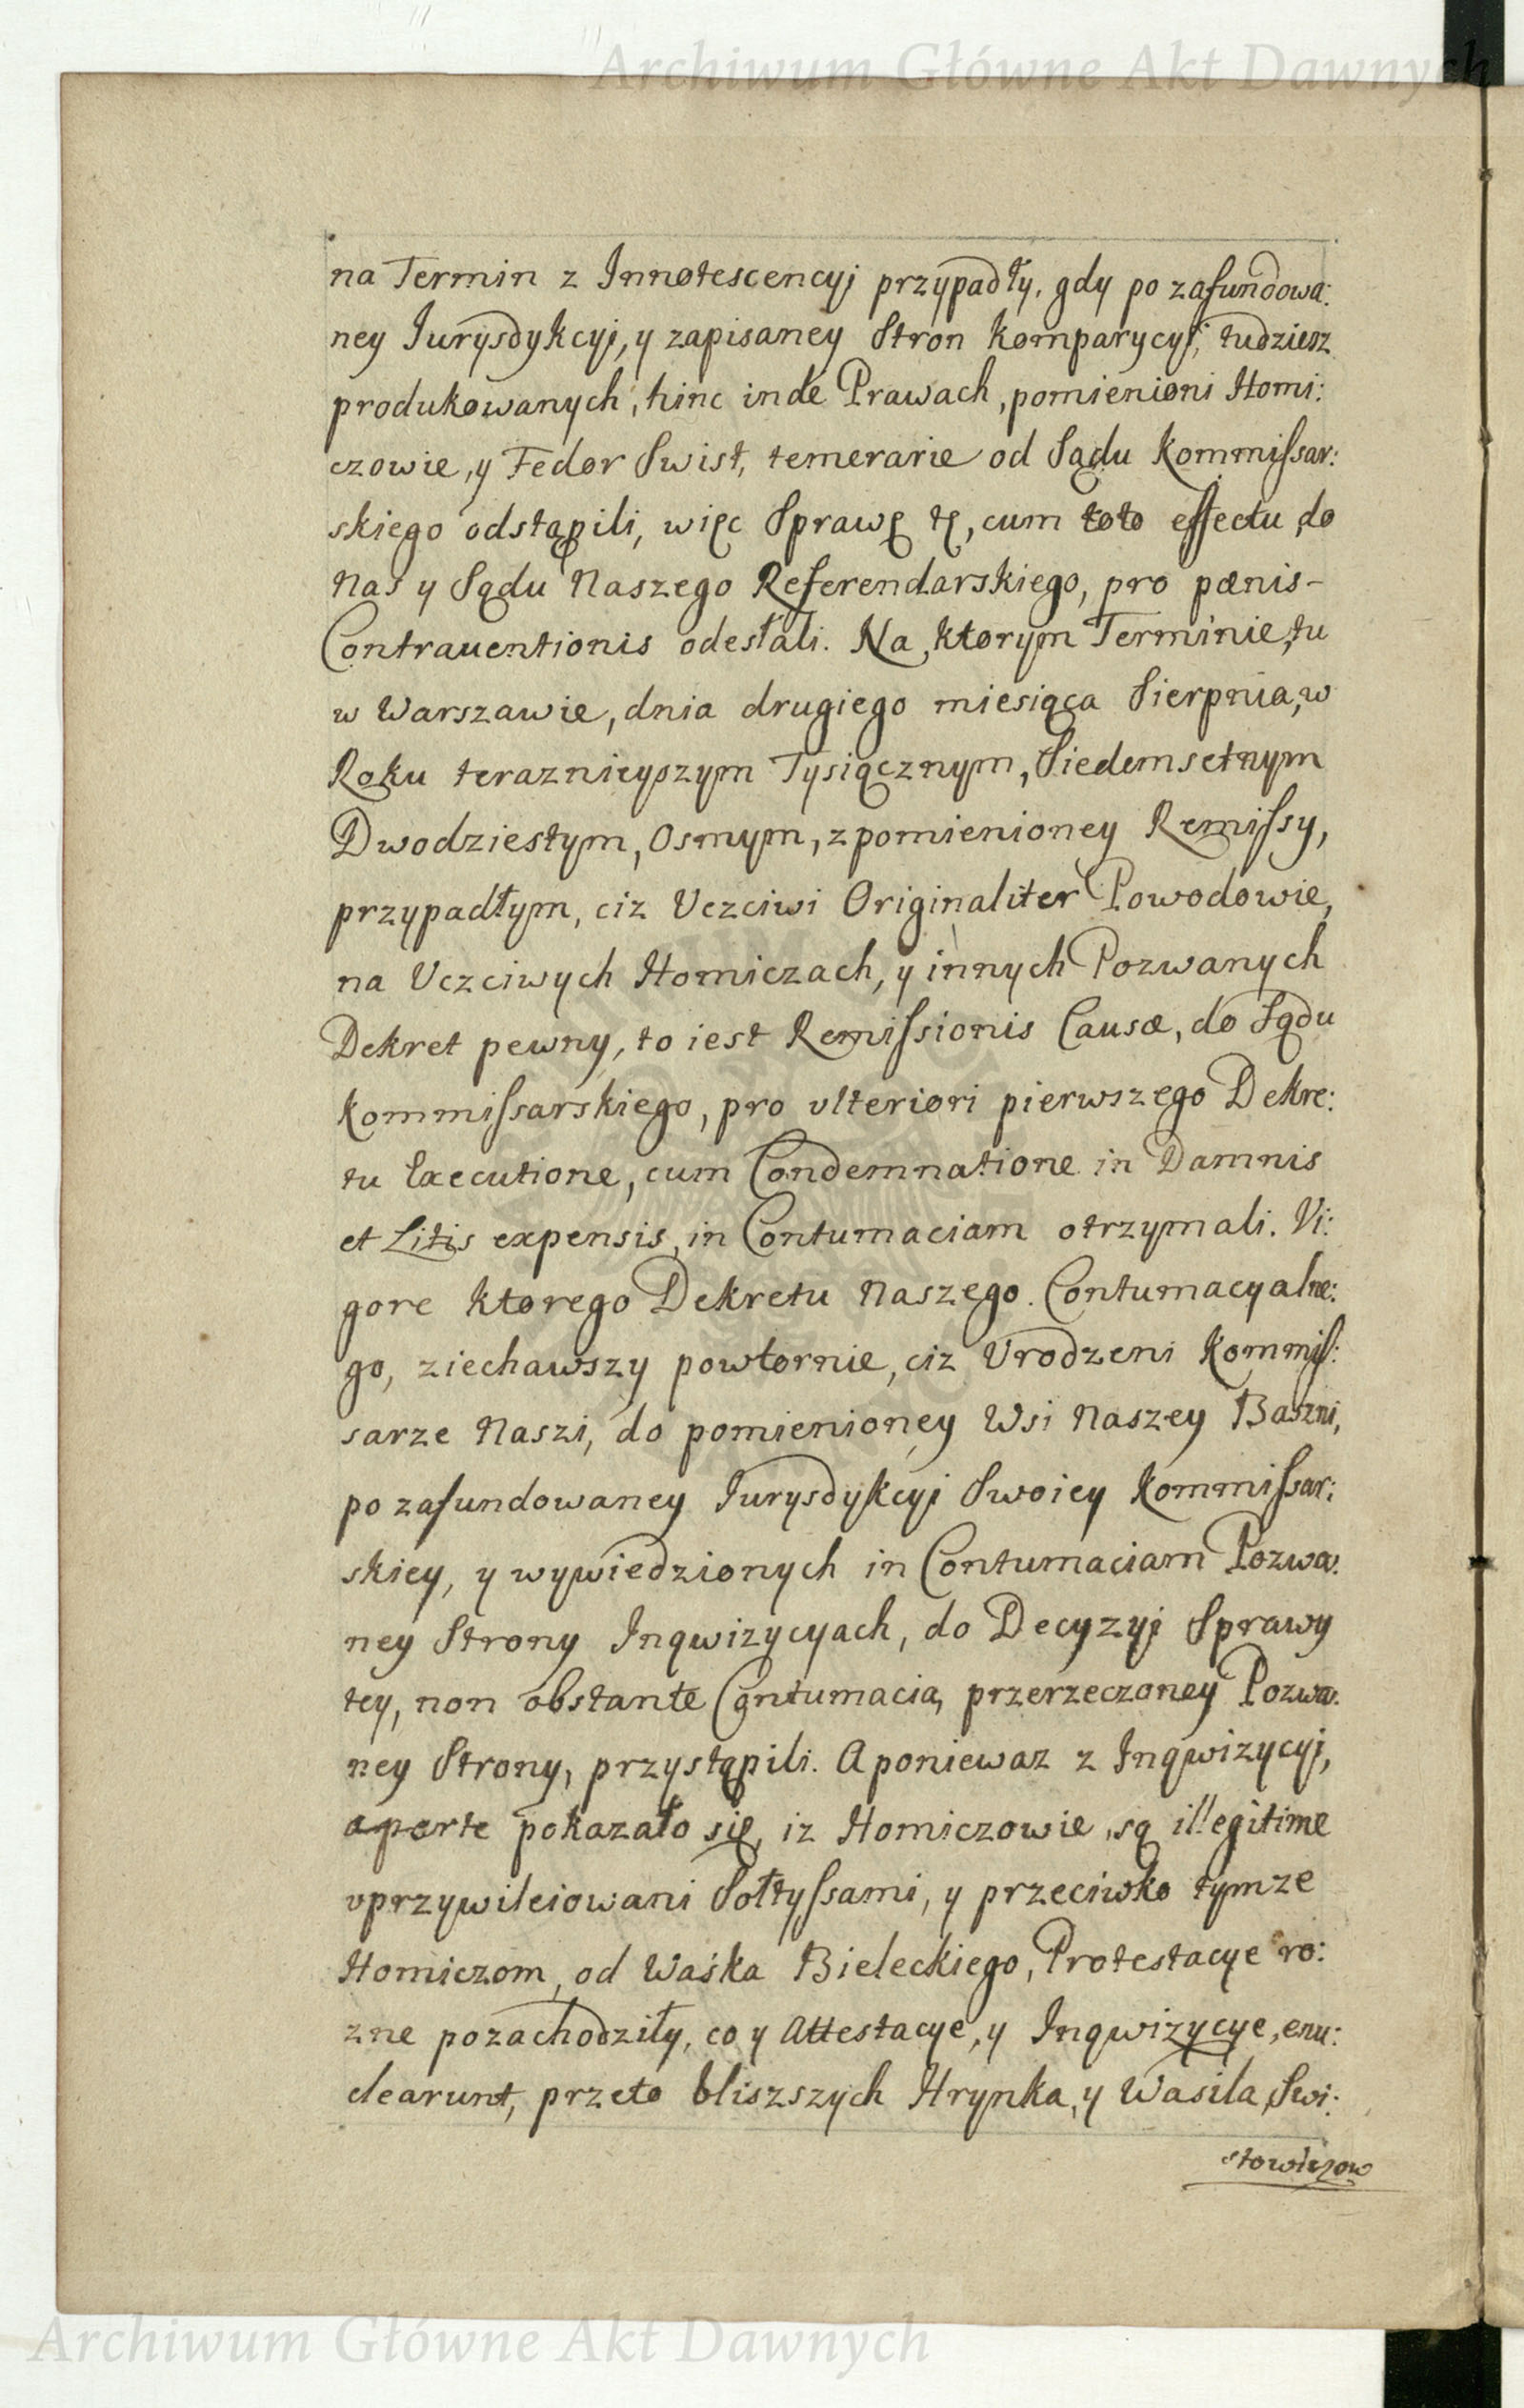 Archiwum Główne Akt Dawnych
na Termin z Innotescencyj przypadły, gdy po zafundowa:
ney Jurysdykcyj, y zapisaney Stron Komparycyj, tudziesz
produkowanych, hinc inde Prawach, pomienioni Homi:
czowie, y Fedor Swist, temerarie od Sądu Kommissar:
skiego odstąpili, więc Sprawę tę, cum toto effectu, do
Nas y Sądu Naszego Referendarskiego, pro pænis-
Contrauentionis odesłali. Na ktorym Terminie, tu
w Warszawie, dnia drugiego miesiąca Sierpnia, w
Roku teraznieyszym Tysiącznym, Siedemsetnym
Dwodziestym, Osmym, z pomienioney Remissy,
przypadłym, ciz Vczciwi Originaliter Powodowie,
na Vczciwych Homiczach, y innych Pozwanych
Dekret pewny, to iest Remissionis Causæ, do Sądu
Kommissarskiego, pro vlteriori pierwszego Dekre:
tu Executione, cum Condemnatione in Damnis
et Litis expensis, in Contumaciam otrzymali. Vi:
gore ktorego Dekretu Naszego Contumacyalne:
go, ziechawszy powtornie, ciz Vrodzeni Kommis:
sarze Naszi, do pomienioney Wsi Naszey Baszni,
po zafundowaney Jurysdykcyj Swoiey Kommissar:
skiey, y wywiedzionych in Contumaciam Pozwa:
ney Strony Inqwizycyach, do Decyzyj Sprawy
tey, non obstante Contumacia, przerzeczoney Pozwa:
ney Strony, przystąpili. A poniewaz z Inqwizycyj,
aperte pokazało się, iz Homiczowie, są illegitime
vprzywileiowani Sołtyssami, y przeciwko tymze
Homiczom, od Waśka Bieleckiego, Protestacye ro:
zne pozachodziły, co y Attestacye, y Inqwizycye, enu:
clearunt, przeto bliszszych Hrynka, y Wasila, Swi:
stowiczow
Archiwum Główne Akt Dawnych